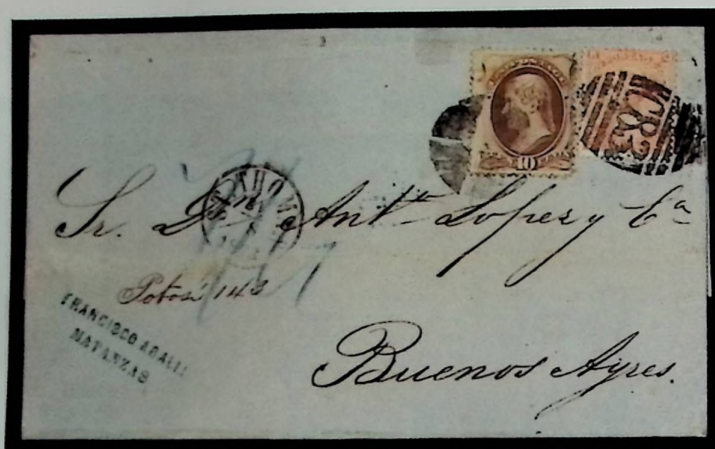 10
C83
THOM
Sr. Dn Antº Lopez y Cª
Potosi 143
FRANCISCO
MATANZAS
Buenos Ayres.